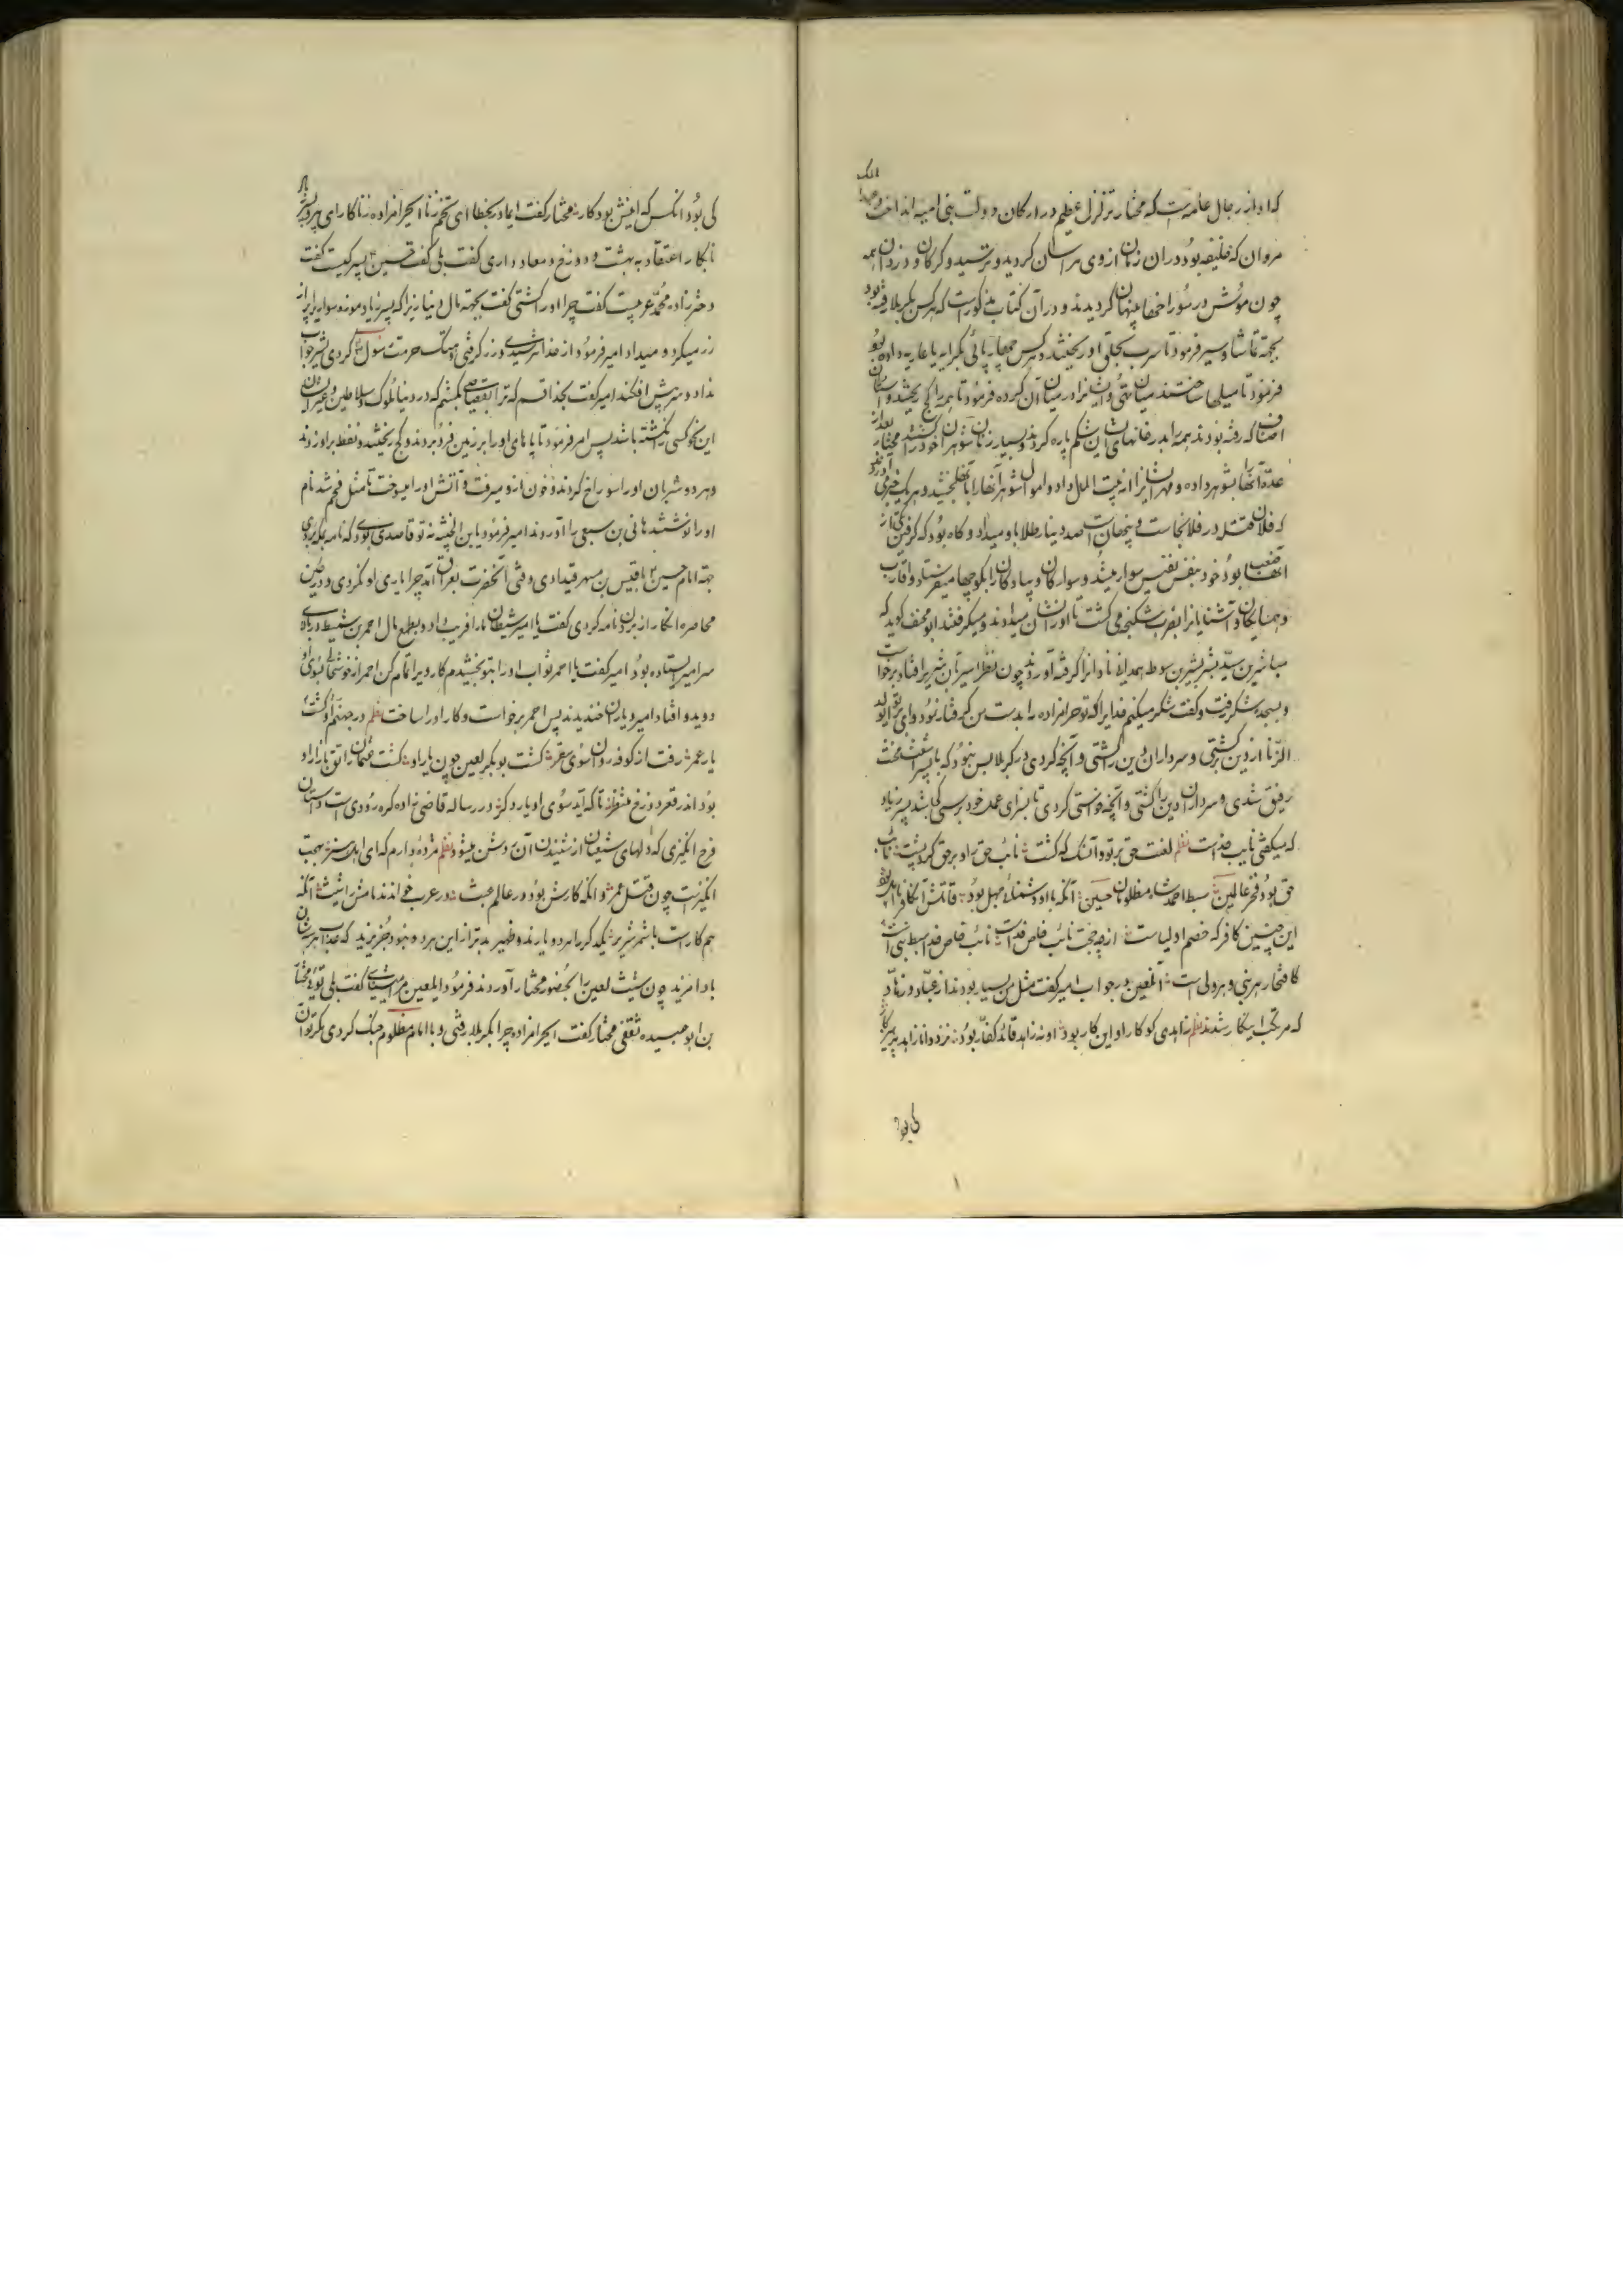 که او از رجال عامه است که مختار تزلزل عظیم در ارکان دولت بنی امیه انداخت
مروان که خلیفه بود در ان زمان از وی هراسان کردید و ترسید و کرکان و دزدان همه
چون موش در سوراخها پنهان کردیدند و در آن کتاب مذکور است که هر کس بکربلا رفته بود
بجهة تماشا و سیر فرمود تا سرب بحلق او ریختند و هر کس چهارپائی بکرایه یا عاریه داده بود
فرمود تا میلها ساختند میان تهی و ایشانرا در میان آن کرده فرمود تا همه را کج ریختند و
اصناف که رفته بودند همه را بدر خانهای ایشان شکم پاره کردند و بسیار زنان شوهر خود را کشتند مختار بعد از
عدّه آنها را بشوهر داده و مهر ایشانرا از بیت المال داد و اموال شوهر آنها را بآنها بخشید و هر یک خبر می آوردند
که فلان قتله در فلانجا است و پنهانست صد دینار طلا باو میداد و کاه بود که کرفتن یکی از
آنها صعب بود خود بنفس نفیس سوار میشد و سواران و پیادکان را بکوچها میفرستاد و اقارب
و همسایکان و آشنایانرا بضرب شکنجه می کشت تا او را نشان میدادند و میکرفتند ابو مخنف کوید که
همدانی نادانرا کرفته آوردند چون نظر امیر بآن شریر افتاد برخواست
و بسجده شکر رفت و کفت شکر میکنم خدایرا که تو حرامزاده را بدست من کرفتار نمود وای بر تو ای ولد
الزنا از دین کشتی و سرداران دین را کشتی و آنچه کردی در کربلا بس نبود که با پسر اشعث
رفیق شدی و سرداران دین را کشتی و آنچه خواستی کردی تا بسزای عمل خود برسی کی باشد پسر زیاد
که میکفتی نایب خداست نظم لعنت حق بر تو و آنکه کشت نائب حق را و بر حق کرد پشت نائب
حق بود فخر عالمین سبط احمد شاه مظلومان حسین آنکه با او دشمن و جهل بود قاتلش آن کافر نااهل بود
این چنین کافر که خصم اولیاست از چه جهت نائب خاص خداست نائب خاص خدا سبط نبی است
کافتخار هر نبی و هر ولی است آنلعین در جواب امیر کفت مثل من بسیار بودند از عبّاد و زهّاد
که مرتکب اینکار شدند نظم زاهدی کو کار او این کار بود او نه زاهد قائد کفّار بود نزد دانا زاهد پرهیزکار
کی بود
کی بود انکس که اینش بود کار مختار کفت ای مادر بخطا ای تخم زنا ای حرامزاده زناکار ای پیر
نابکار اعتقاد به بهشت و دوزخ و معاد داری کفت بلی کفت حسین پسر کیست کفت
دخترزاده محمّد عربیست کفت چرا او را کشتی کفت بجهة مال دنیا زیرا که پسر زیاد موزه سوار پر از
زر میکرد و میداد امیر فرمود از خدا نترسیدی و زر کرفتی و هتک حرمت رسول کردی بشیر جواب
نداد و سر پیش افکند امیر کفت بخدا قسم که ترا بقصاصی بکشم که در دنیا ملوک و سلاطین و غیر ایشان
این نحو کسی نکشته باشد پس امر فرمود تا پاهای او را بر زمین فرو بردند و کج ریختند و نفط بر او زدند
و هر دو شریان او را سوراخ کردند و خون ازو میرفت و آتش او را میسوخت تا مثل فحم شد نام
او را نوشتند هانی بن سبعی را آوردند امیر فرمود یابن الخبیثه نه تو قاصدی بودی که نامه بمکه بردی
جهة امام حسین با قیس بن مسهر صیداوی وقتی آنحضرت بعراق آمد چرا یاری او نکردی و در حین
محاصره انکار از بردن نامه کردی کفت یا امیر شیطان مارا فریب داد و بطمع مال احمر بن شمیط در بالای
سر امیر ایستاده بود امیر کفت یا احمر ثواب او را بتو بخشیدم کار ویرا تمام کن احمر از خوشحالی بسوی او
دوید و افتاد امیر و یاران خندیدند پس احمر برخواست و کار او را ساخت نظم در جهنم او کشت
یار عمر رفت از کوفه روان سوی سقر کشت بوبکر لعین چون یار او کشت عثمان رونق بازار او
بود اندر قعر دوزخ منتظر تا که آید سوی او یار دکر در رساله قاضی زاده کره رودی است داستان
فرح انکیزی که دلهای شیعیان از شنیدن آن روشن میشود نظم مژده دارم که ای اهل سنن بهجت
انکیزست چون قتل عمر و انکه کارش بود در عالم عبث در عرب خواندند نامش را شبث آنکه
هم کار است با شمر شریر یکدکر را هر دو یارند و ظهیر بدتر از این هر دو نبود جز یزید که عذاب هر سه شان
بادا مزید چون شبث لعین را بحضور مختار آوردند فرمود ایلعین مرا میشناسی کفت بلی توئی مختار
بن ابوعبیده ثقفی مختار کفت ایحرامزاده چرا بکربلا رفتی و با امام مظلوم جنک کردی مکر توان